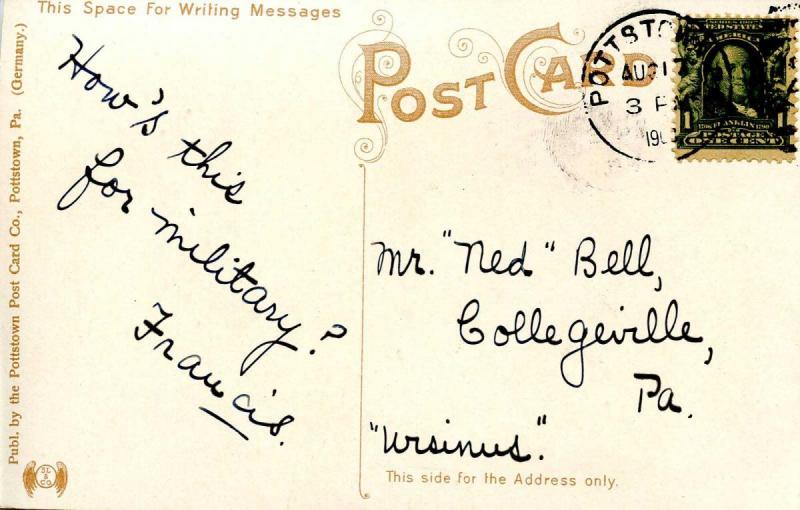 This Space For Writing Messages
POST CARD
How's this
for military?
Francis.
Mr. "Ned" Bell,
Collegeville,
Pa.
"Ursinus".
This side for the Address only.
Publ. by the Pottstown Post Card Co., Pottstown, Pa. (Germany.)
POTTSTO
AUG 17
3 P
190
SERIES 1902
UNITED STATES
AMERICA
1706 FRANKLIN 1790
1 POSTAGE
ONE CENT
SL
&
CO.